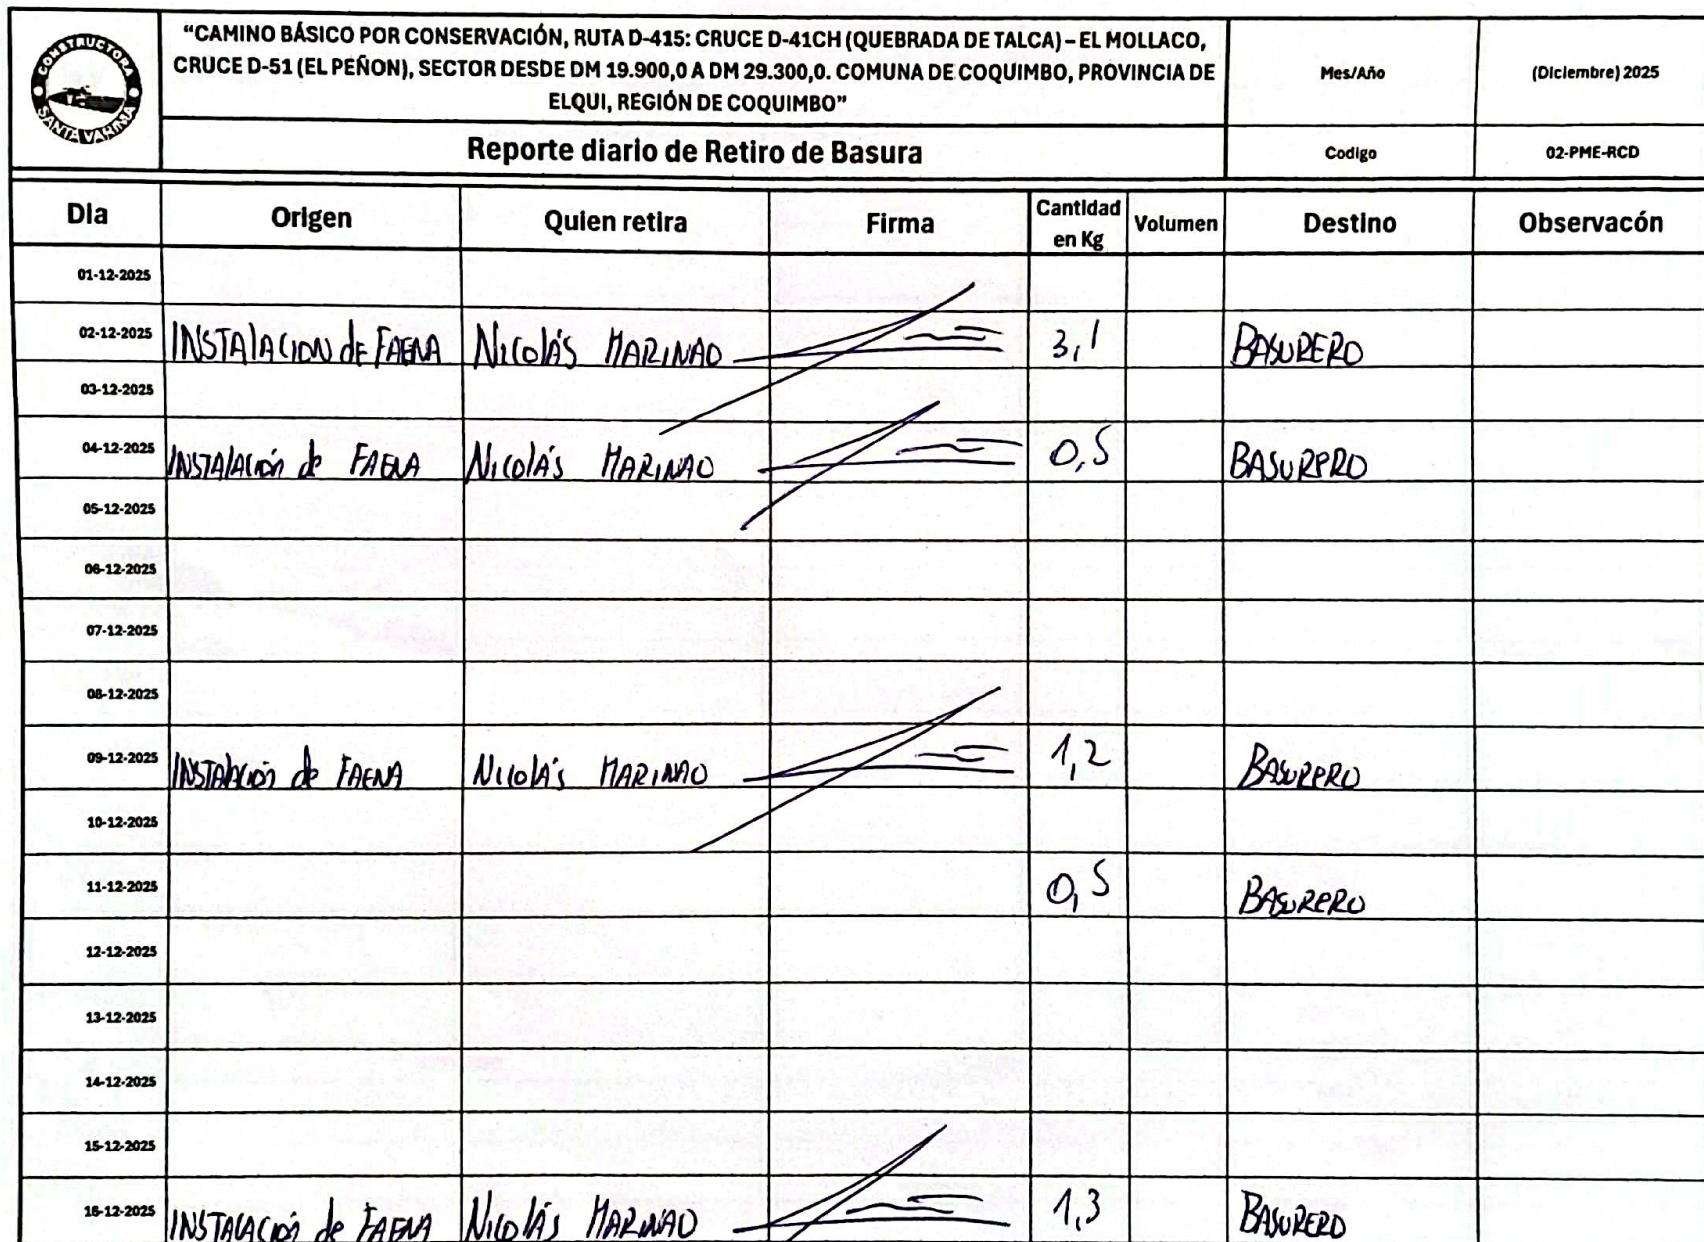 CONSTRUCTORA
SANTA VAHIMA
"CAMINO BÁSICO POR CONSERVACIÓN, RUTA D-415: CRUCE D-41CH (QUEBRADA DE TALCA) – EL MOLLACO,
CRUCE D-51 (EL PEÑON), SECTOR DESDE DM 19.900,0 A DM 29.300,0. COMUNA DE COQUIMBO, PROVINCIA DE
ELQUI, REGIÓN DE COQUIMBO"
Mes/Año (Diciembre) 2025
Reporte diario de Retiro de Basura
Codigo 02-PME-RCD
Dia Origen Quien retira Firma Cantidad en Kg Volumen Destino Observacón
01-12-2025
02-12-2025 INSTALACION de FAENA Nicolás MARINAO 3,1 BASURERO
03-12-2025
04-12-2025 INSTALACIÓN de FAENA Nicolás MARINAO 0,5 BASURERO
05-12-2025
06-12-2025
07-12-2025
08-12-2025
09-12-2025 INSTALACIÓN de FAENA Nicolás MARINAO 1,2 BASURERO
10-12-2025
11-12-2025 0,5 BASURERO
12-12-2025
13-12-2025
14-12-2025
15-12-2025
16-12-2025 INSTALACIÓN de FAENA Nicolás MARINAO 1,3 BASURERO